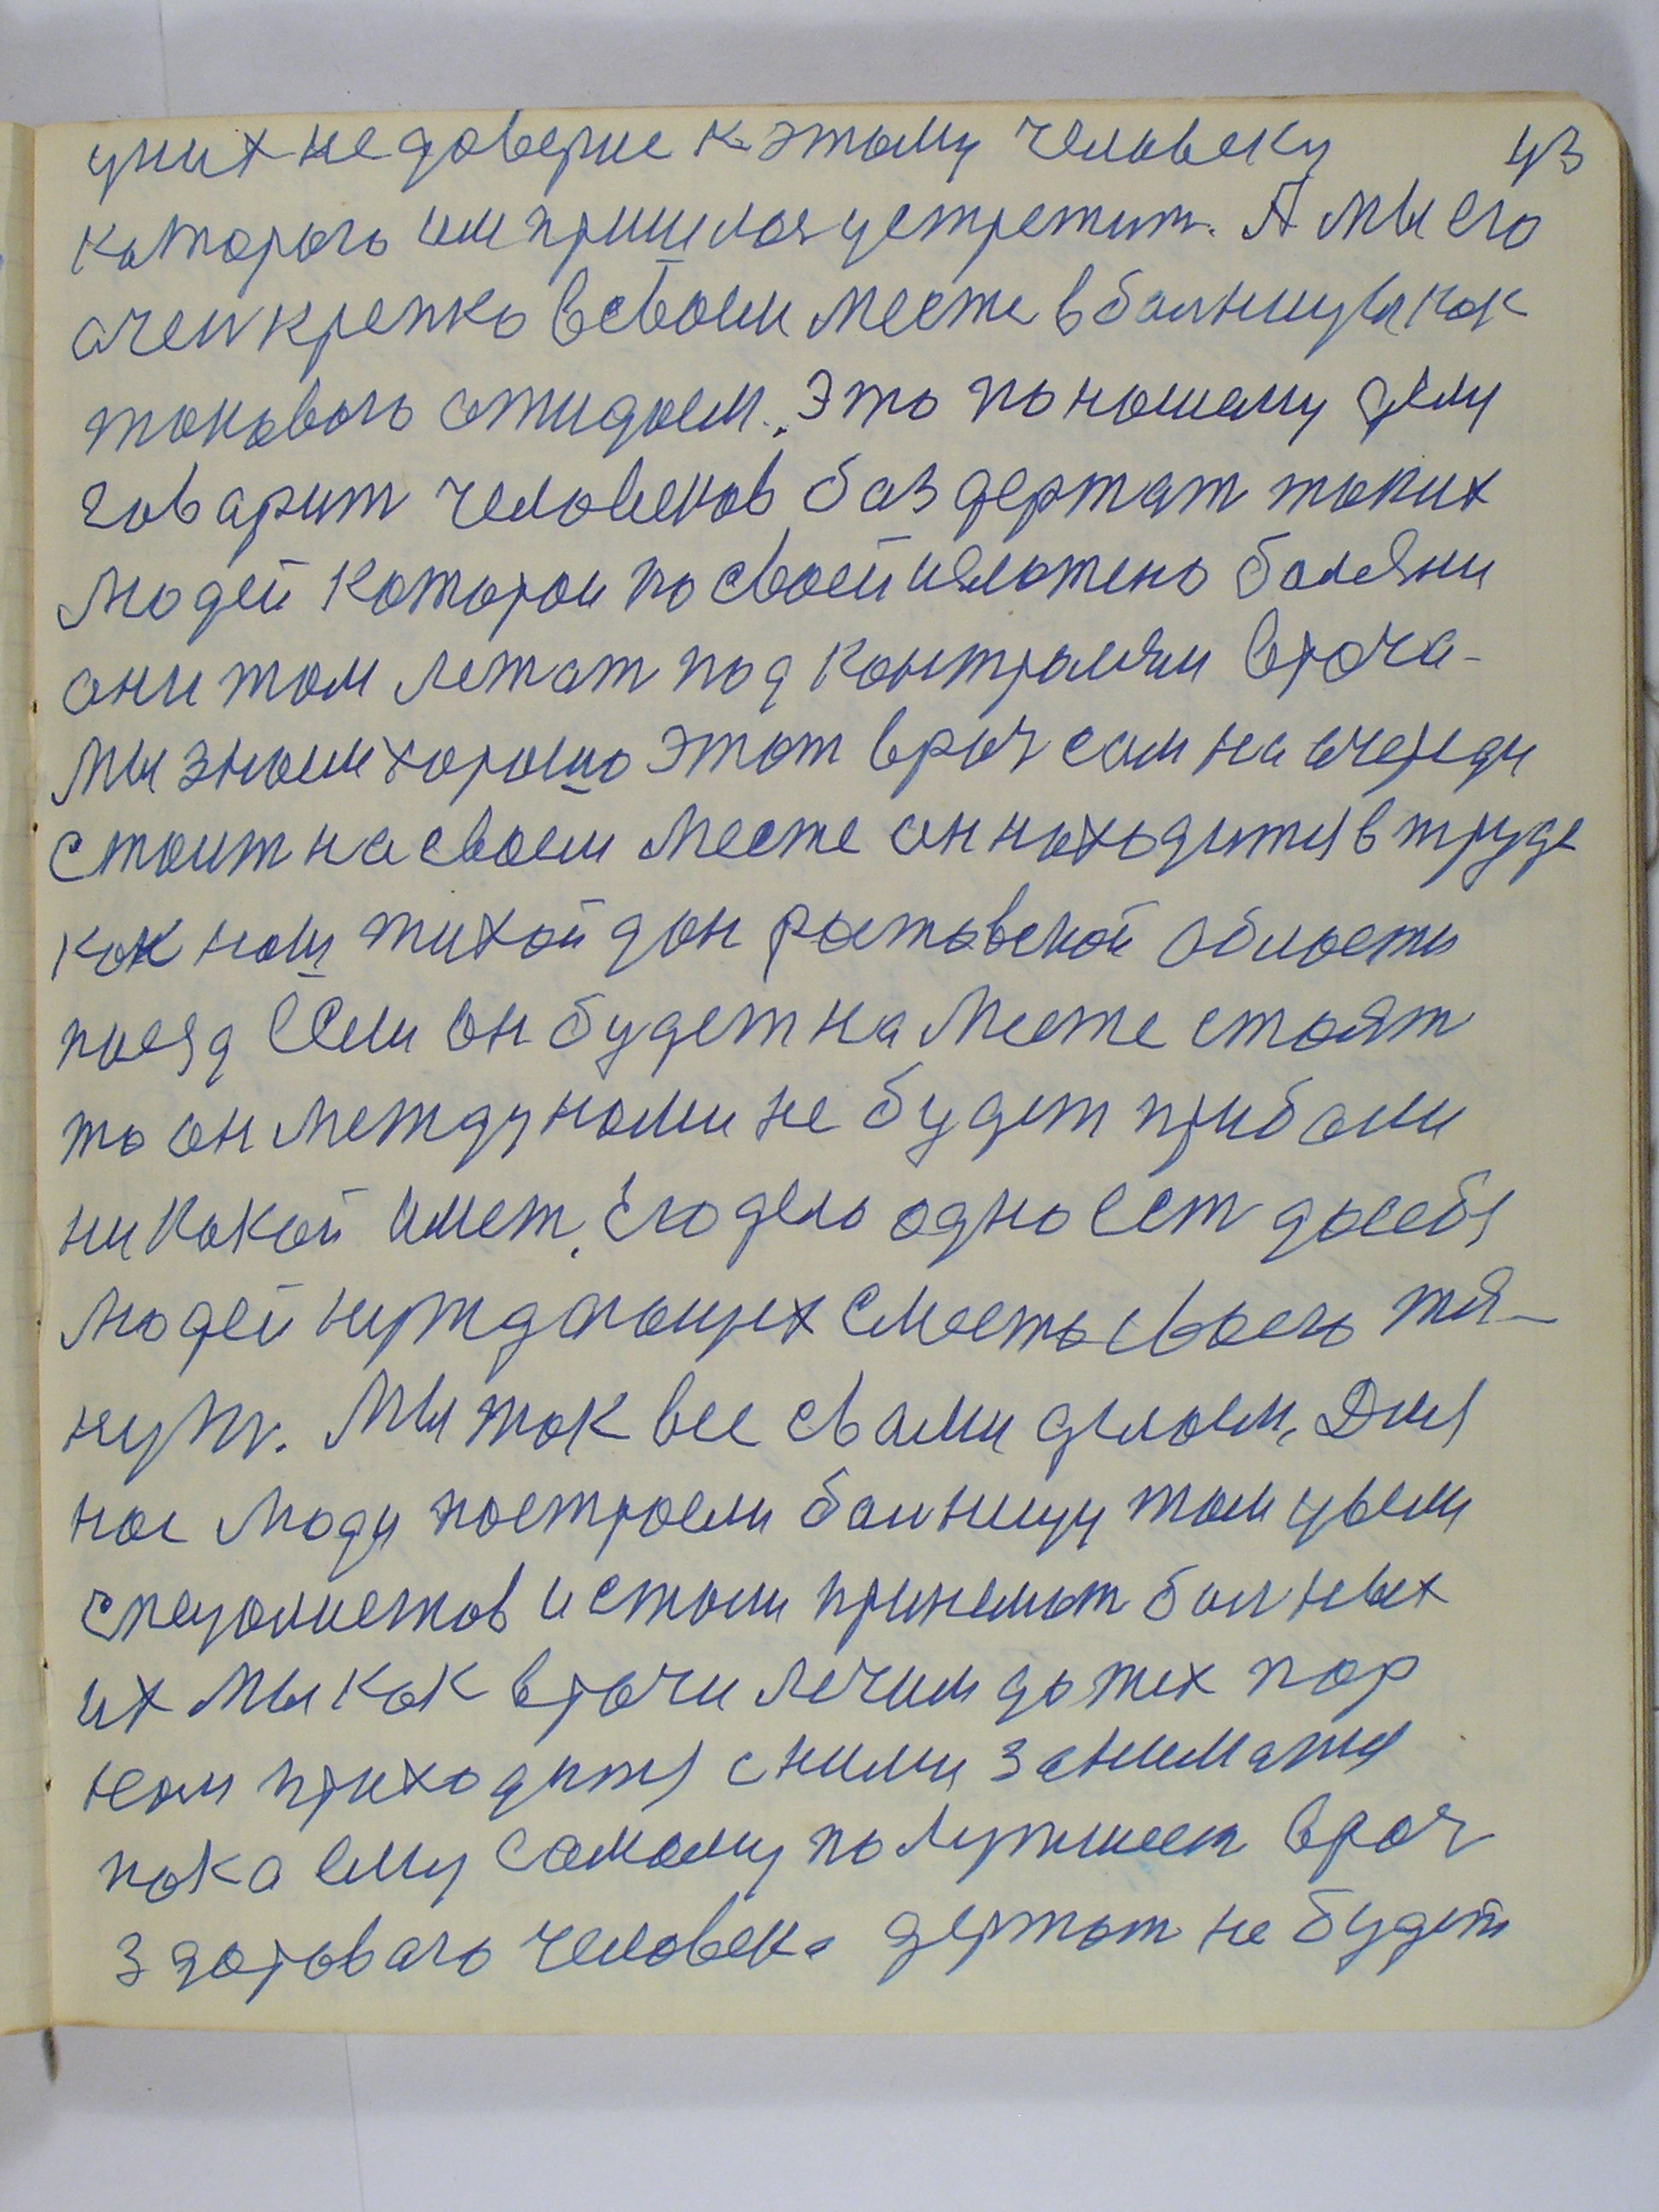 уних не доверие к этаму человеку 43
каторого им пришлося устретит. А мы его
очен крепко всвоем месте вбалницы как
таковога ожидаем. Это по нашему делу
говарит человеков баз держат таких
людей каторои по своей
они там лежат под контролям врача-
мы знаем харошо этот врач сам на очереди
стоит на своем месте он находится в труде
как наш тихай дон растовской области
поезд Если он будет на месте стоят
то он между нами не будет прибами
ни какой имет. Его дело одно ест досебя
людей нуждающих сместа своего тя-
нут. Мы так все свами делаем, Для
нас люди построели балницу там увели
спецалистов и стали принемат балных
их мы как врачи лечим до тех пор
нам приходится сними заниматся
пока ему самаму полутшеет врач
здороваго человека держат не будет